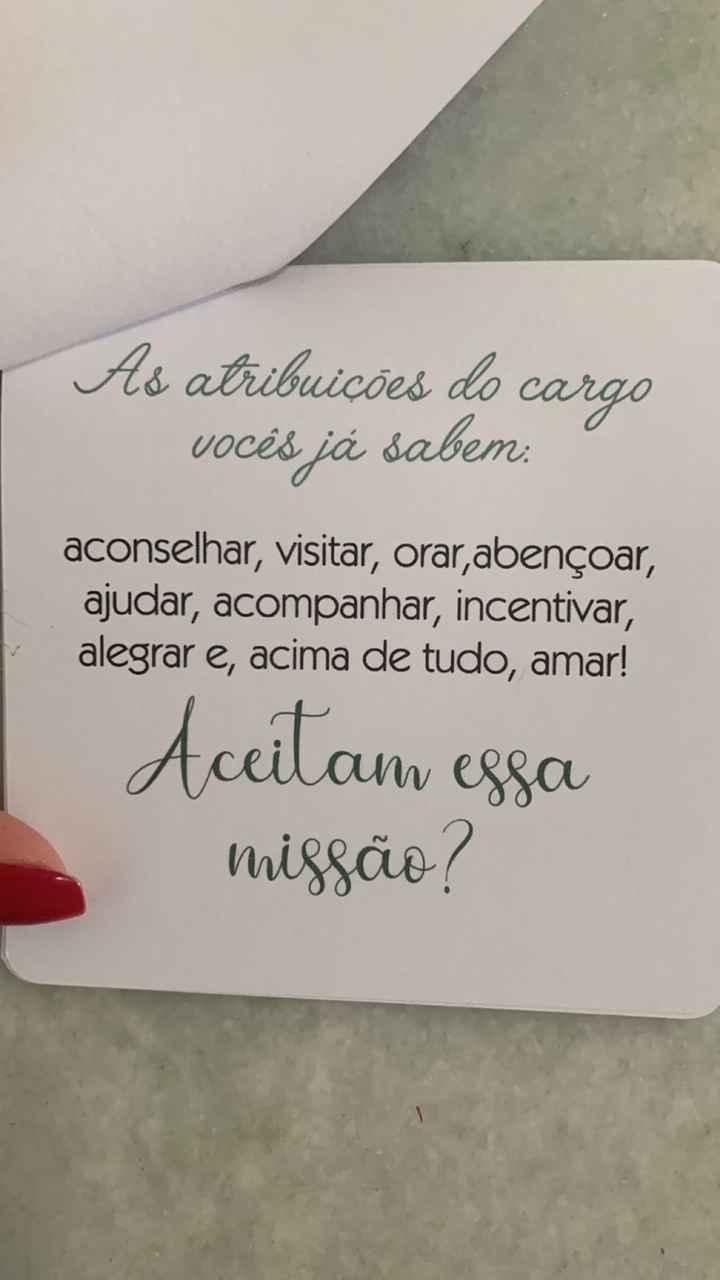 As atribuições do cargo
vocês já sabem:
aconselhar, visitar, orar,abençoar,
ajudar, acompanhar, incentivar,
alegrar e, acima de tudo, amar!
Aceitam essa
missão?